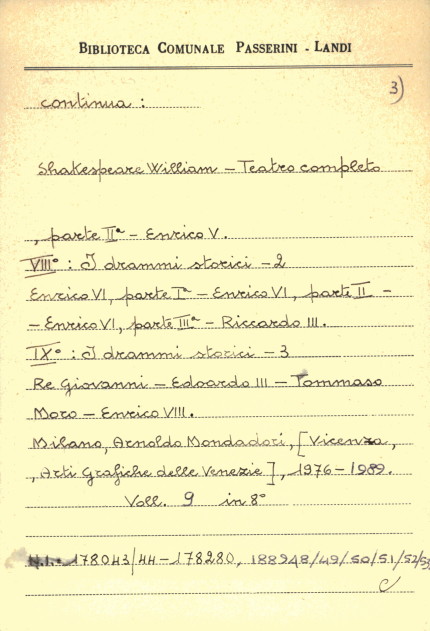 BIBLIOTECA COMUNALE PASSERINI - LANDI
3)
continua :
Shakespeare William - Teatro completo
, parte IIª - Enrico V.
VIIIº : I drammi storici - 2
Enrico VI, parte Iª - Enrico VI, parte II -
- Enrico VI, parte IIIª - Riccardo III.
IXº : I drammi storici - 3
Re Giovanni - Edoardo III - Tommaso
Moro - Enrico VIII.
Milano, Arnoldo Mondadori, [Vicenza,
, Arti Grafiche delle Venezie], 1976-1989.
Voll. 9 in 8º
N.I. 178043/44-178280, 188948/49/50/51/52/53